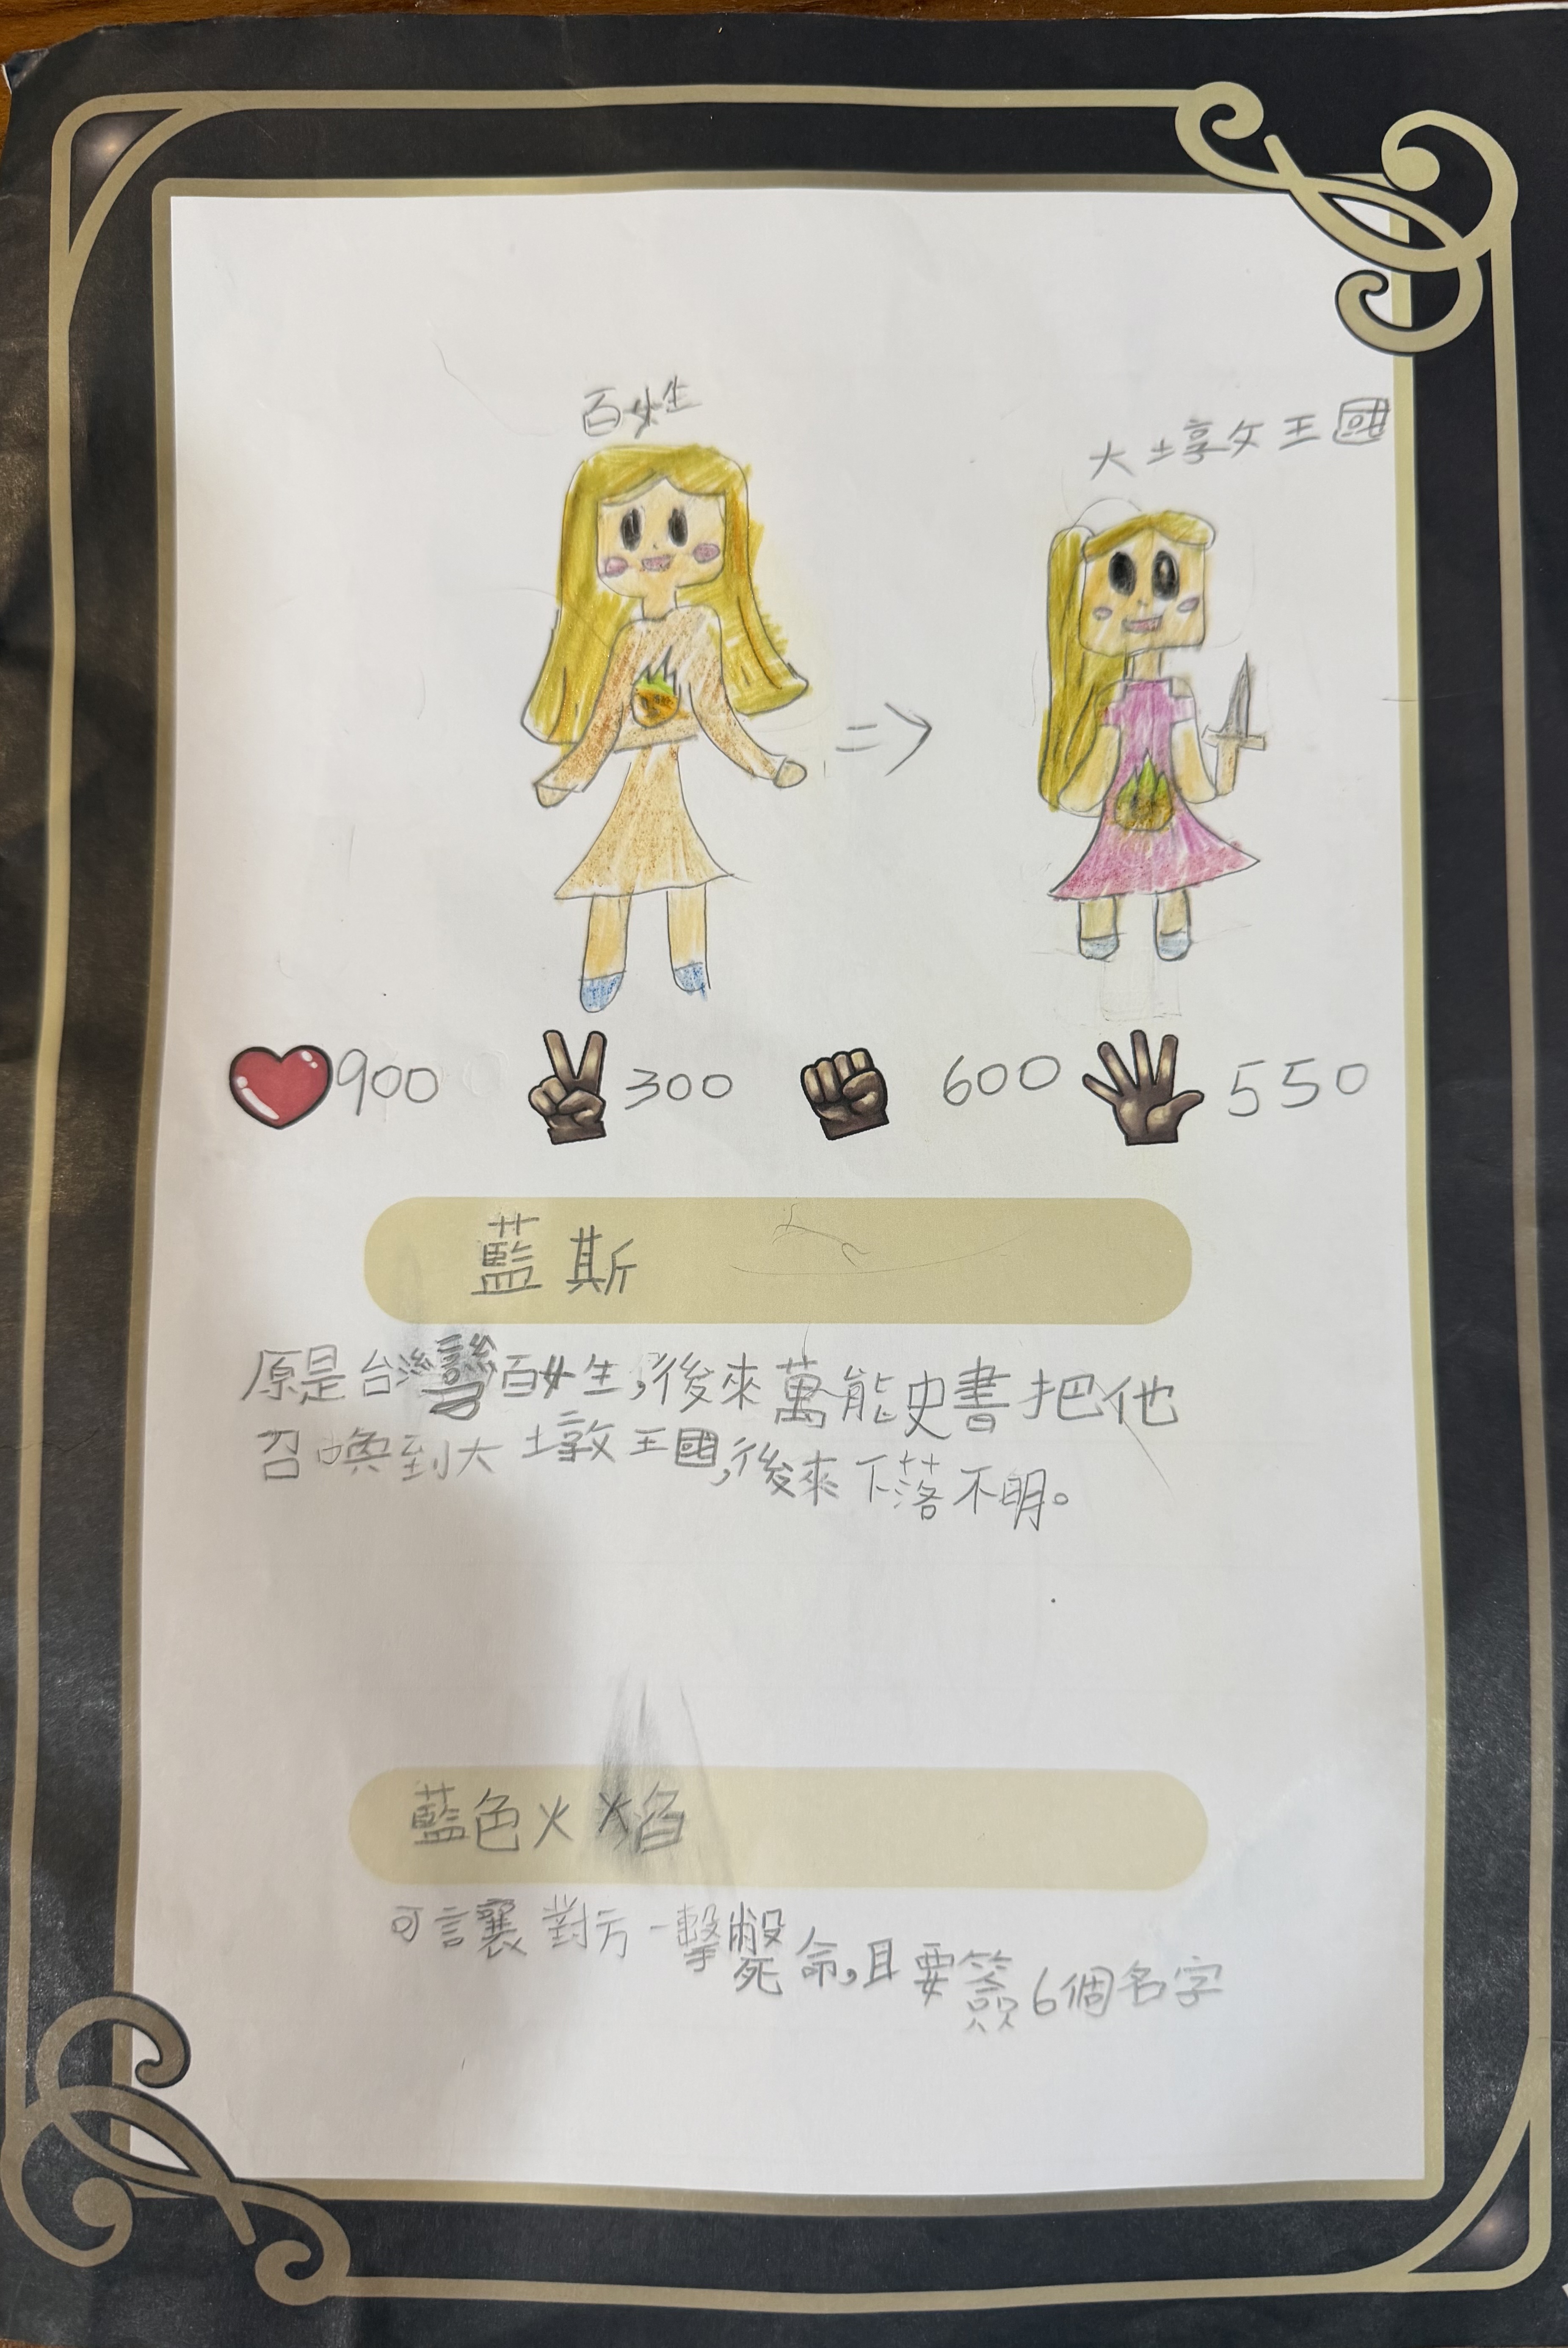 百姓
大墩王國
900 300 600 550
藍斯
原是台灣百姓,後來萬能史書把他
召喚到大墩王國,後來下落不明。
藍色火焰
可讓對方一擊斃命,且要簽6個名字